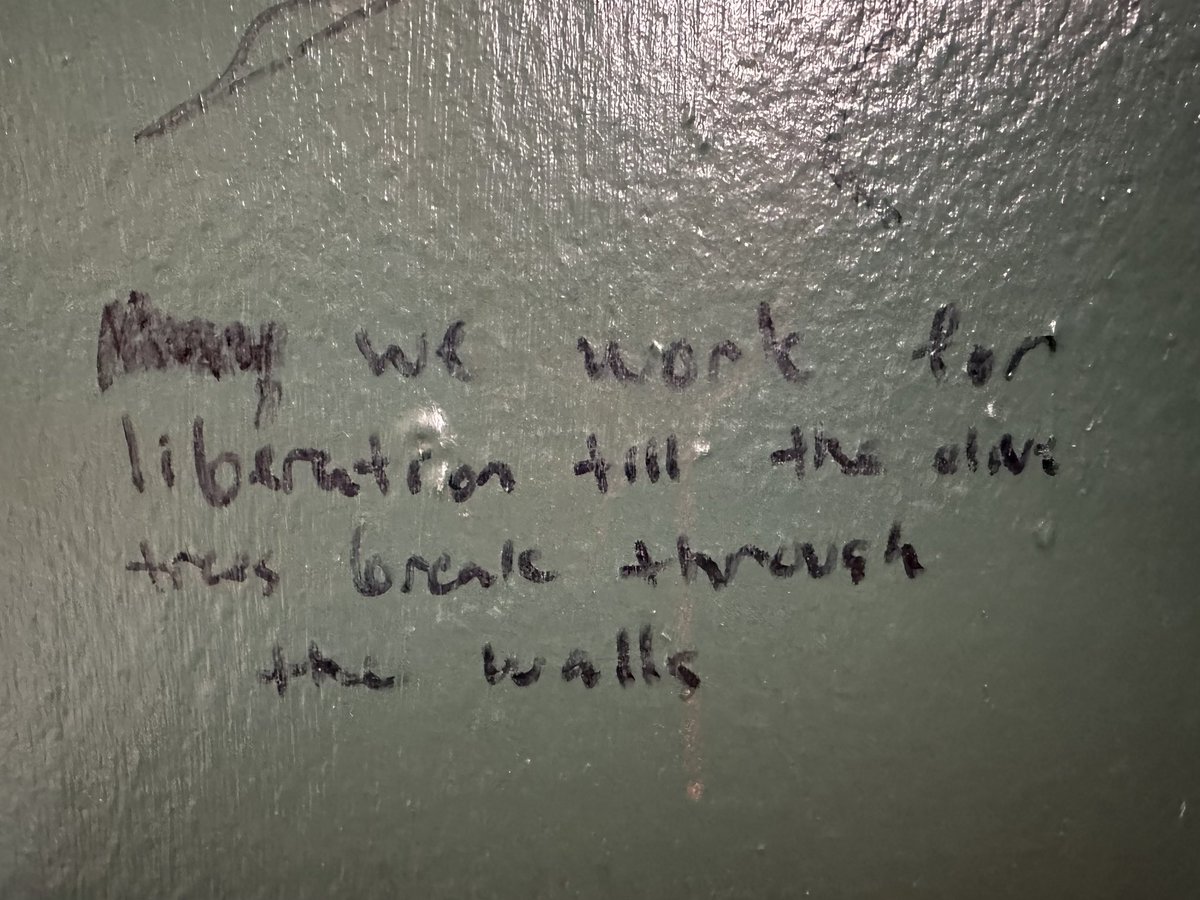 May we work for
liberation till the olive
trees break through
the walls